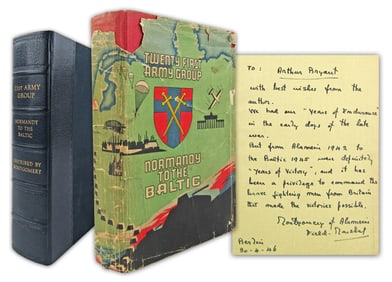 21ST ARMY
GROUP
NORMANDY
TO THE
BALTIC
INSCRIBED BY
MONTGOMERY
TWENTY FIRST
ARMY GROUP
NORMANDY
TO THE
BALTIC
To:
Arthur Bryant
with best wishes from the
author.
We had our "Years of Endurance"
in the early days of the late
war.
But from Alamein 1942 to
the Baltic 1945 were definitely
"years of Victory", and it has
been a privilege to command the
brave fighting men from Britain
that made the victories possible.
Montgomery of Alamein
Field-Marshal
Berlin
30-4-46